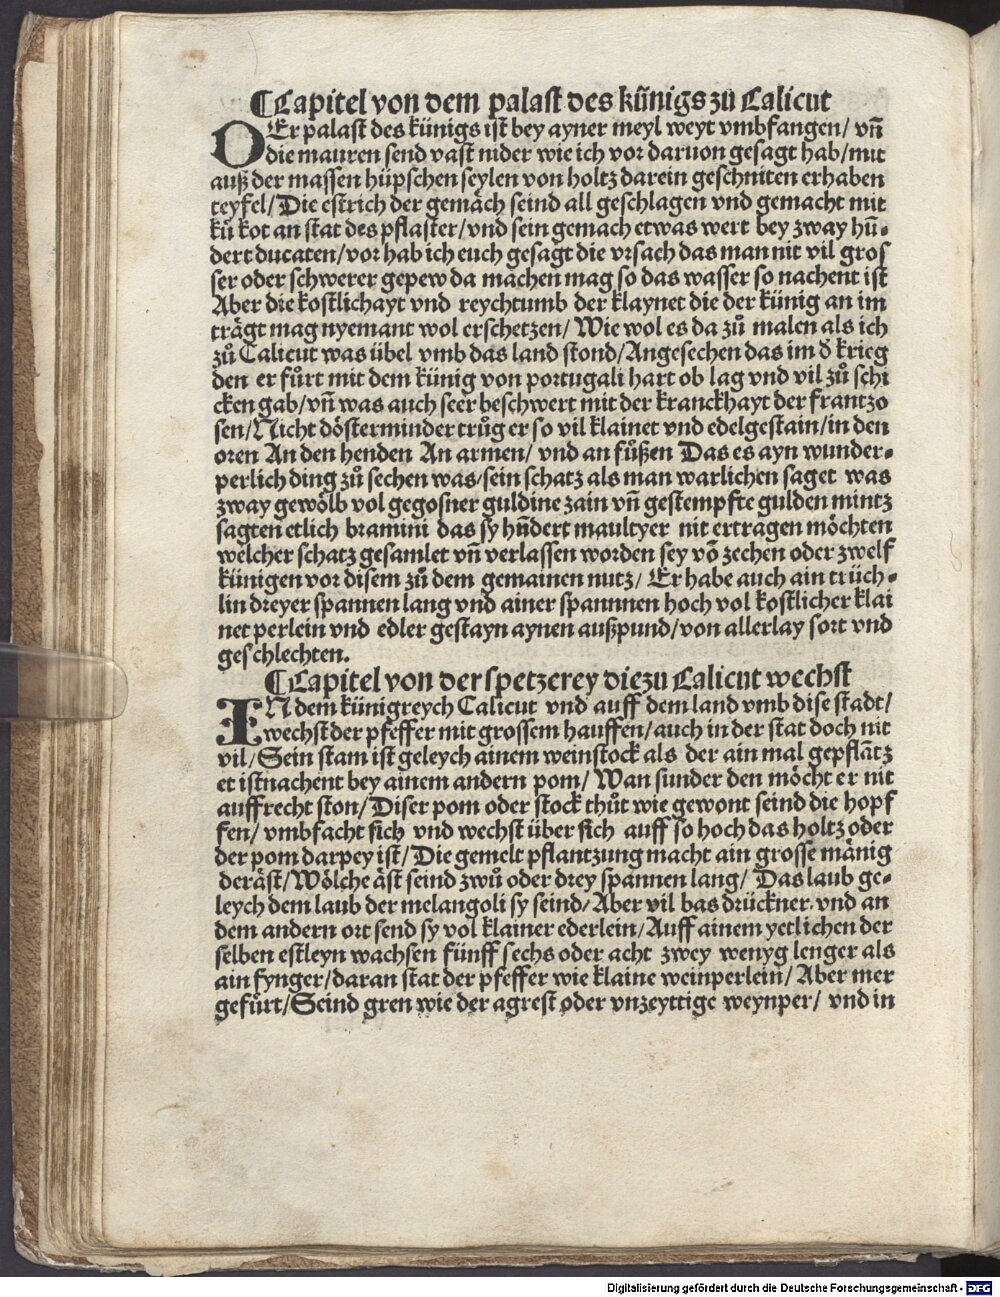 ¶Capitel von dem palast des künigs zů Calicut
DEr palast des künigs ist bey ayner meyl weyt vmbfangen/ vn̄
die mauren send vast nider wie ich vor daruon gesagt hab/mit
auß der massen hüpschen seylen von holtz darein geschniten erhaben
teyfel/Die estrich der gemäch seind all geschlagen vnd gemacht mit
ků kot an stat des pflaster/vnd sein gemach etwas wert bey zway hū-
dert ducaten/vor hab ich euch gesagt die vrsach das man nit vil gros
ser oder schwerer gepew da machen mag so das wasser so nachent ist
Aber die kostlichayt vnd reychtumb der klaynet die der künig an im
trägt mag nyemant wol erschetzen/Wie wol es da zů malen als ich
zů Calicut was übel vmb das land stond/Angesechen das im d̄ krieg
den er fůrt mit dem künig von portugali hart ob lag vnd vil zů schi
cken gab/vn̄ was auch seer beschwert mit der kranckhayt der frantzo
sen/Nicht dösterminder trůg er so vil klainet vnd edelgestain/in den
oren An den henden An armen/ vnd an füßen Das es ayn wunder-
perlich ding zů sechen was/sein schatz als man warlichen saget was
zway gewölb vol gegosner guldine zain vn̄ gestempfte gulden mintz
sagten etlich bramini das sy hūdert maultyer nit ertragen möchten
welcher schatz gesamlet vn̄ verlassen worden sey vō zechen oder zwelf
künigen vor disem zů dem gemainen nutz/ Er habe auch ain trüch-
lin dreyer spannen lang vnd ainer spannnen hoch vol kostlicher klai
net perlein vnd edler gestayn aynen außpund/von allerlay sort vnd
geschlechten.
¶Capitel von der spetzerey die zu Calicut wechst
IN dem künigreych Calicut vnd auff dem land vmb dise stadt/
wechst der pfeffer mit grossem hauffen/auch in der stat doch nit
vil/Sein stam ist geleych ainem weinstock als der ain mal gepflātz
et istnachent bey ainem andern pom/Wan sunder den möcht er nit
auffrecht ston/Diser pom oder stock thůt wie gewont seind die hopf
fen/ vmbfacht sich vnd wechst über sich auff so hoch das holtz oder
der pom darpey ist/Die gemelt pflantzung macht ain grosse mänig
deräst/Wölche äst seind zwů oder drey spannen lang/ Das laub ge-
leych dem laub der melangoli sy seind/Aber vil bas drückner vnd an
dem andern ort send sy vol klainer ederlein/Auff ainem yetlichen der
selben estleyn wachsen fünff sechs oder acht zwey wenyg lenger als
ain fynger/daran stat der pfeffer wie klaine weinperlein/Aber mer
gefürt/Seind gren wie der agrest oder vnzeyttige weynper/ vnd in
Digitalisierung gefördert durch die Deutsche Forschungsgemeinschaft - DFG